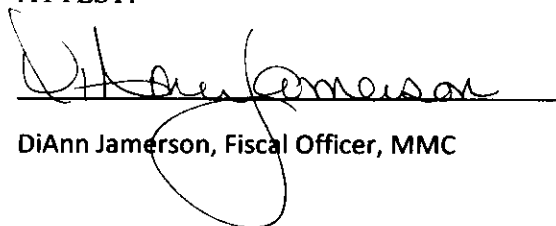 ATTEST:
DiAnn Jamerson
DiAnn Jamerson, Fiscal Officer, MMC